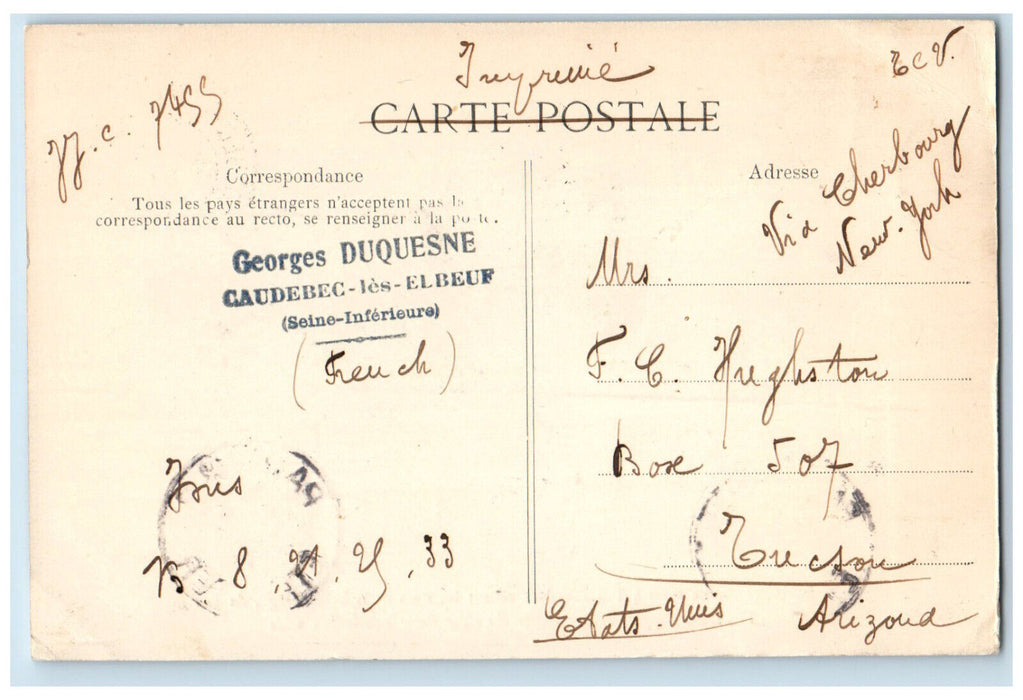 Imprimé
T C V.
J.J. C. 7455
CARTE POSTALE
Correspondance
Tous les pays étrangers n'acceptent pas la
correspondance au recto, se renseigner à la poste.
Georges DUQUESNE
CAUDEBEC-lès-ELBEUF
(Seine-Inférieure)
(French)
8
33
Adresse
Via Cherbourg
New-York
Mrs.
F. C. Hughston
Box 507
Tucson
Etats-Unis Arizona